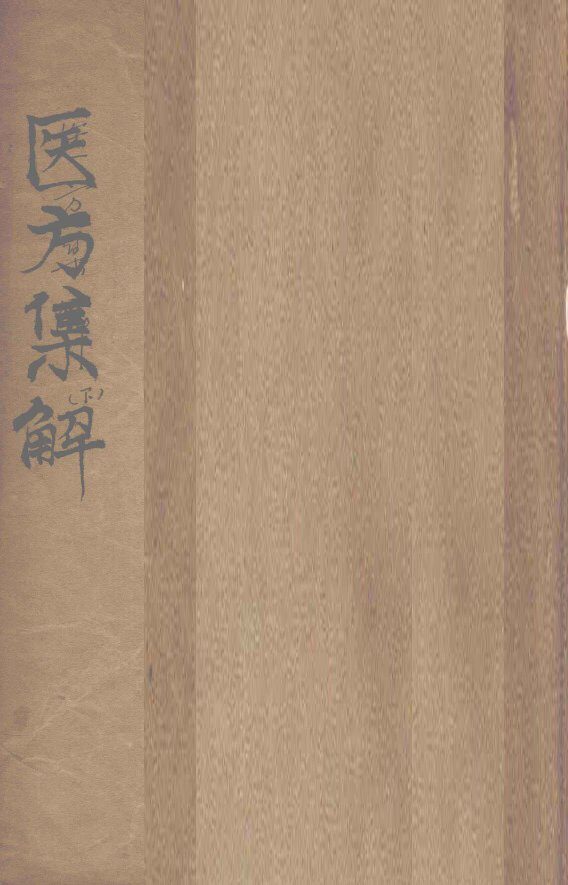 医方集解
（下）